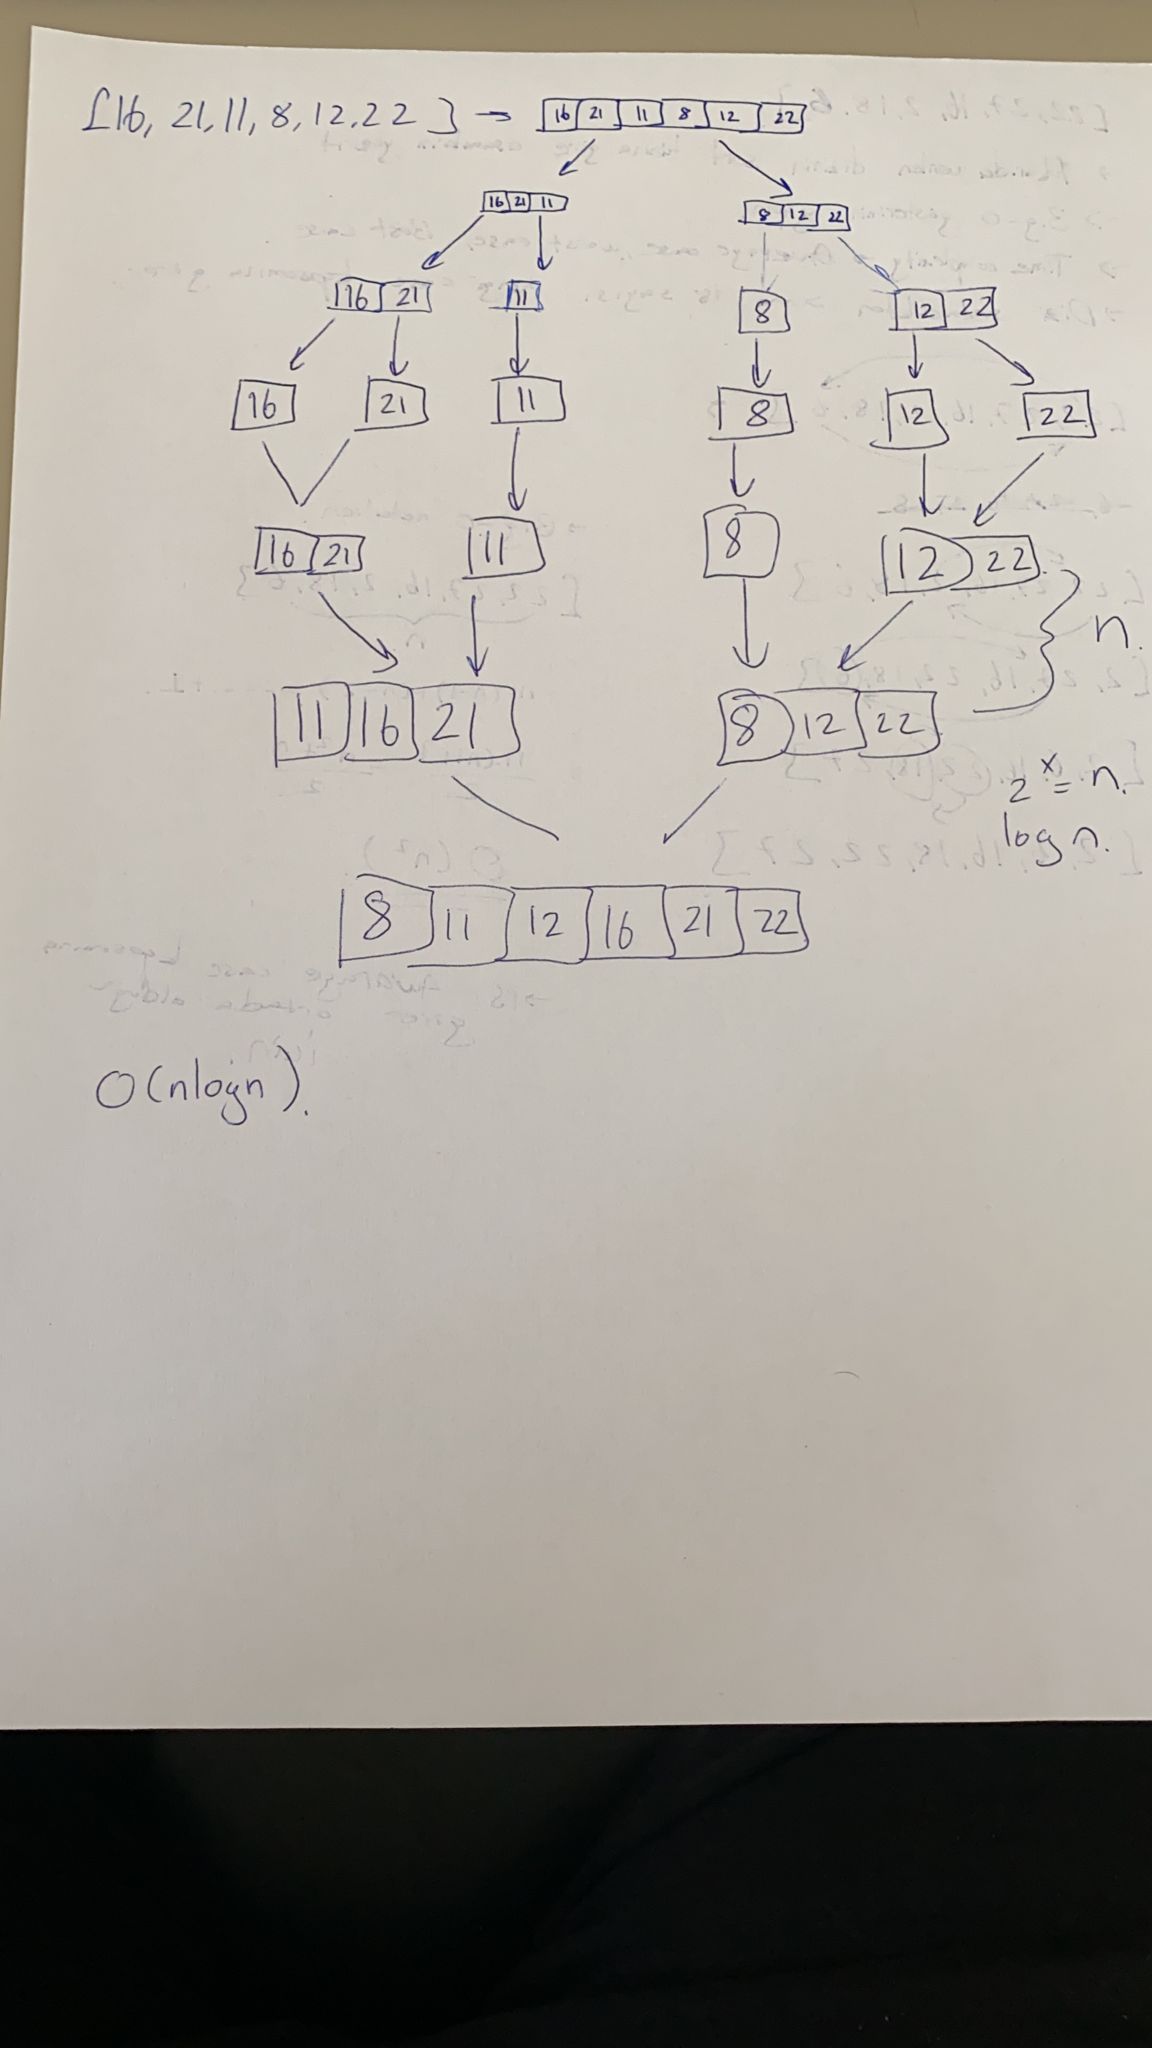 [16, 21, 11, 8, 12, 22] → 16 21 11 8 12 22
16 21 11 8 12 22
16 21 11 8 12 22
16 21 11 8 12 22
16 21 11 8 12 22
n.
11 16 21 8 12 22
2^x = n.
log n.
8 11 12 16 21 22
O(nlogn).